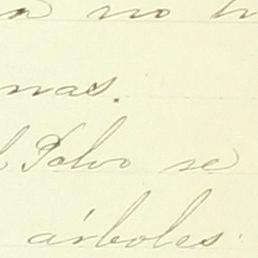 a no
nas.
Polvo se
árboles.